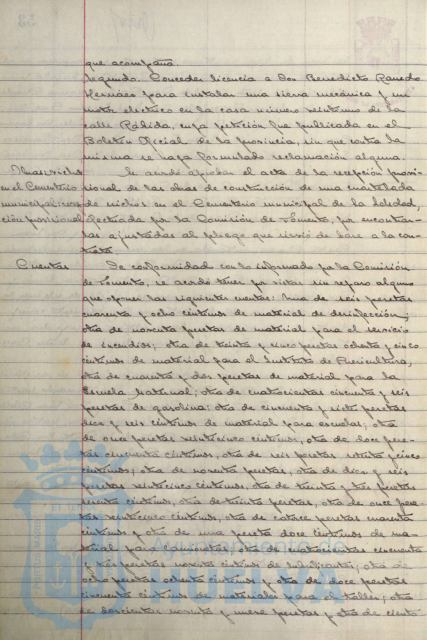 que acompaña
Segundo. Conceder licencia a Don Benedicto
Hernáez para instalar una sierra mecánica y un
motor electrico en la casa número veintiuno de la
calle Rábida, cuya petición fue publicada en el
Boletín Oficial de la provincia, sin que contra la
misma se haya formulado reclamación alguna.
Se acordó aprobar el acta de la recepción provi-
sional de las obras de construcción de una cuartelada
de nichos en el Cementerio municipal de la Soledad,
efectuada por la Comisión de Fomento, por encontrar-
las ajustadas al pliego que sirvió de base a la con-
trata.
en el Cementerio
municipal:
ción provisional
Cuentas
De conformidad con lo informado por la Comisión
de Fomento, se acordó tener por vistas sin reparo alguno
que oponer las siguientes cuentas: Una de seis pesetas
cuarenta y ocho céntimos de material de desinfección;
otra de noventa pesetas de material para el servicio
de incendios; otra de treinta y cinco pesetas ochenta y cinco
céntimos de material para el Instituto de Puericultura,
otra de cuarenta y dos pesetas de material para la
Escuela Maternal; otra de cuatrocientas cincuenta y seis
pesetas de gasolina; otra de cincuenta y siete pesetas
diez y seis céntimos de material para escuelas; otra
de once pesetas veinticinco céntimos, otra de doce pese-
tas cincuenta céntimos, otra de seis pesetas setenta y cinco
céntimos; otra de noventa pesetas, otra de diez y seis
pesetas veinticinco céntimos, otra de treinta y tres pesetas
sesenta céntimos, otra de treinta pesetas, otra de once pese-
tas veinticinco céntimos, otra de catorce pesetas cincuenta
céntimos y otra de una peseta doce céntimos de ma-
terial para camionetas, otra de cuatrocientas cincuenta
y tres pesetas noventa céntimos de lubrificantes; otra de
ocho pesetas ochenta céntimos y otra de doce pesetas
cincuenta céntimos de materiales para el taller; otra
de doscientas noventa y nueve pesetas y otra de ciento